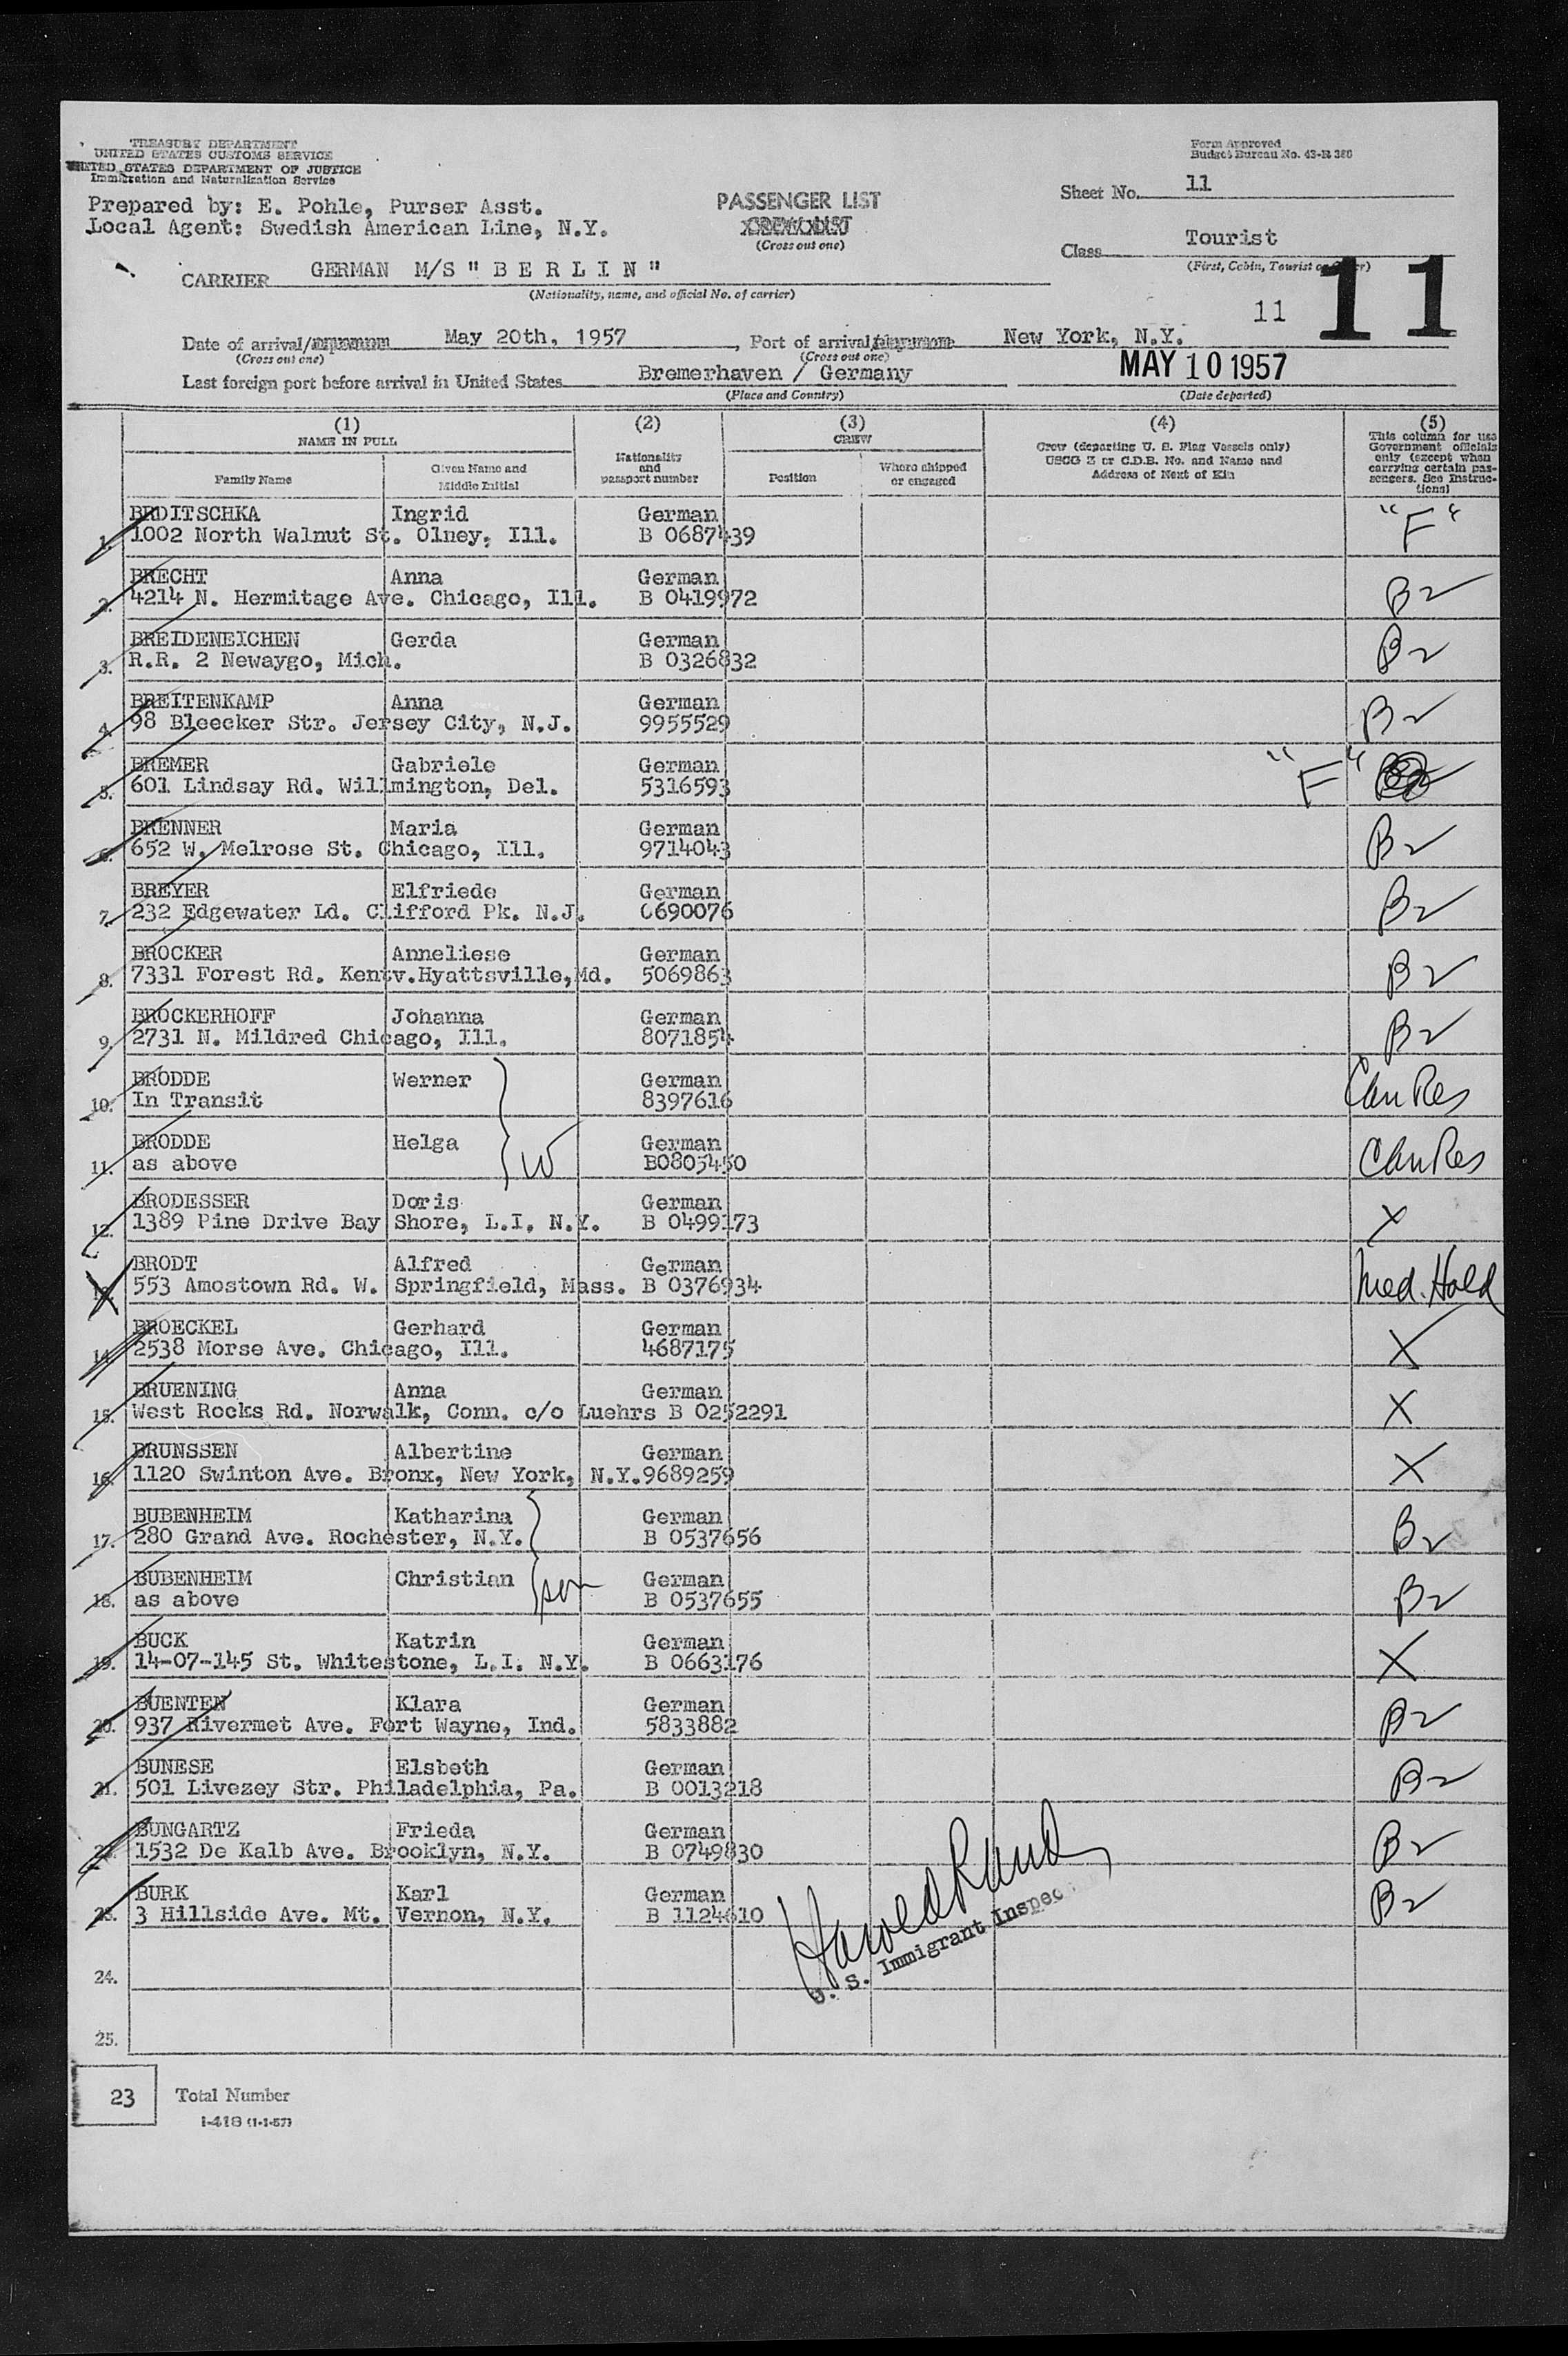 TREASURY DEPARTMENT
UNITED STATES CUSTOMS SERVICE
UNITED STATES DEPARTMENT OF JUSTICE
Immigration and Naturalization Service
Form Approved
Budget Bureau No. 43-R 386
Prepared by: E. Pohle, Purser Asst.
Local Agent: Swedish American Line, N.Y.
PASSENGER LIST
(Cross out one)
Sheet No. 11
Class Tourist
(First, Cabin, Tourist or Other)
CARRIER GERMAN M/S " B E R L I N "
(Nationality, name, and official No. of carrier)
11 11
Date of arrival/ May 20th, 1957, Port of arrival/ New York, N.Y.
(Cross out one) (Cross out one)
Last foreign port before arrival in United States Bremerhaven / Germany MAY 10 1957
(Place and Country) (Date departed)
(1) (2) (3) (4) (5)
NAME IN FULL
Family Name
Given Name and Middle Initial
Nationality and passport number
CREW
Position
Where shipped or engaged
Crew (departing U. S. Flag Vessels only)
USCG Z or C.D.B. No. and Name and
Address of Next of Kin
This column for use
Government officials
only (except when
carrying certain pas-
sengers. See Instruc-
tions)
BRDITSCHKA Ingrid German "F"
1. 1002 North Walnut St. Olney, Ill. B 0687439
BRECHT Anna German B2
2. 4214 N. Hermitage Ave. Chicago, Ill. B 0419972
BREIDENEICHEN Gerda German B2
3. R.R. 2 Newaygo, Mich. B 0326832
BREITENKAMP Anna German B2
4. 98 Bleecker Str. Jersey City, N.J. 9955529
BREMER Gabriele German "F"
5. 601 Lindsay Rd. Willmington, Del. 5316593
BRENNER Maria German B2
6. 652 W. Melrose St. Chicago, Ill. 9714043
BREYER Elfriede German B2
7. 232 Edgewater Ld. Clifford Pk. N.J. 0690076
BROCKER Anneliese German B2
8. 7331 Forest Rd. Kentv.Hyattsville,Md. 5069863
BROCKERHOFF Johanna German B2
9. 2731 N. Mildred Chicago, Ill. 8071854
BRODDE Werner German Can Res
10. In Transit 8397616
BRODDE Helga W German Can Res
11. as above B0805450
BRODESSER Doris German X
12. 1389 Pine Drive Bay Shore, L.I. N.Y. B 0499173
BRODT Alfred German Med. Hold
13. 553 Amostown Rd. W. Springfield, Mass. B 0376934
BROECKEL Gerhard German X
14. 2538 Morse Ave. Chicago, Ill. 4687175
BRUENING Anna German X
15. West Rocks Rd. Norwalk, Conn. c/o Luehrs B 0252291
BRUNSSEN Albertine German X
16. 1120 Swinton Ave. Bronx, New York, N.Y.9689259
BUBENHEIM Katharina German B2
17. 280 Grand Ave. Rochester, N.Y. B 0537656
BUBENHEIM Christian son German B2
18. as above B 0537655
BUCK Katrin German X
19. 14-07-145 St. Whitestone, L.I. N.Y. B 0663176
BUENTEN Klara German B2
20. 937 Rivermet Ave. Fort Wayne, Ind. 5833882
BUNESE Elsbeth German B2
21. 501 Livezey Str. Philadelphia, Pa. B 0013218
BUNGARTZ Frieda German B2
22. 1532 De Kalb Ave. Brooklyn, N.Y. B 0749830
BURK Karl German B2
23. 3 Hillside Ave. Mt. Vernon, N.Y. B 1124610
Harold Rand
U. S. Immigrant Inspec
24.
25.
23 Total Number
I-418 (1-1-57)